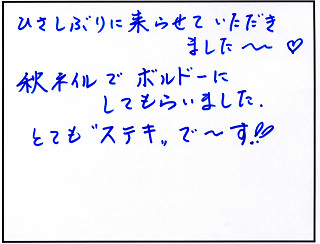 ひさしぶりに来らせていただき
ました〜〜♡
秋ネイルで ボルドーに
してもらいました.
とても〝ステキ〟で〜す!!